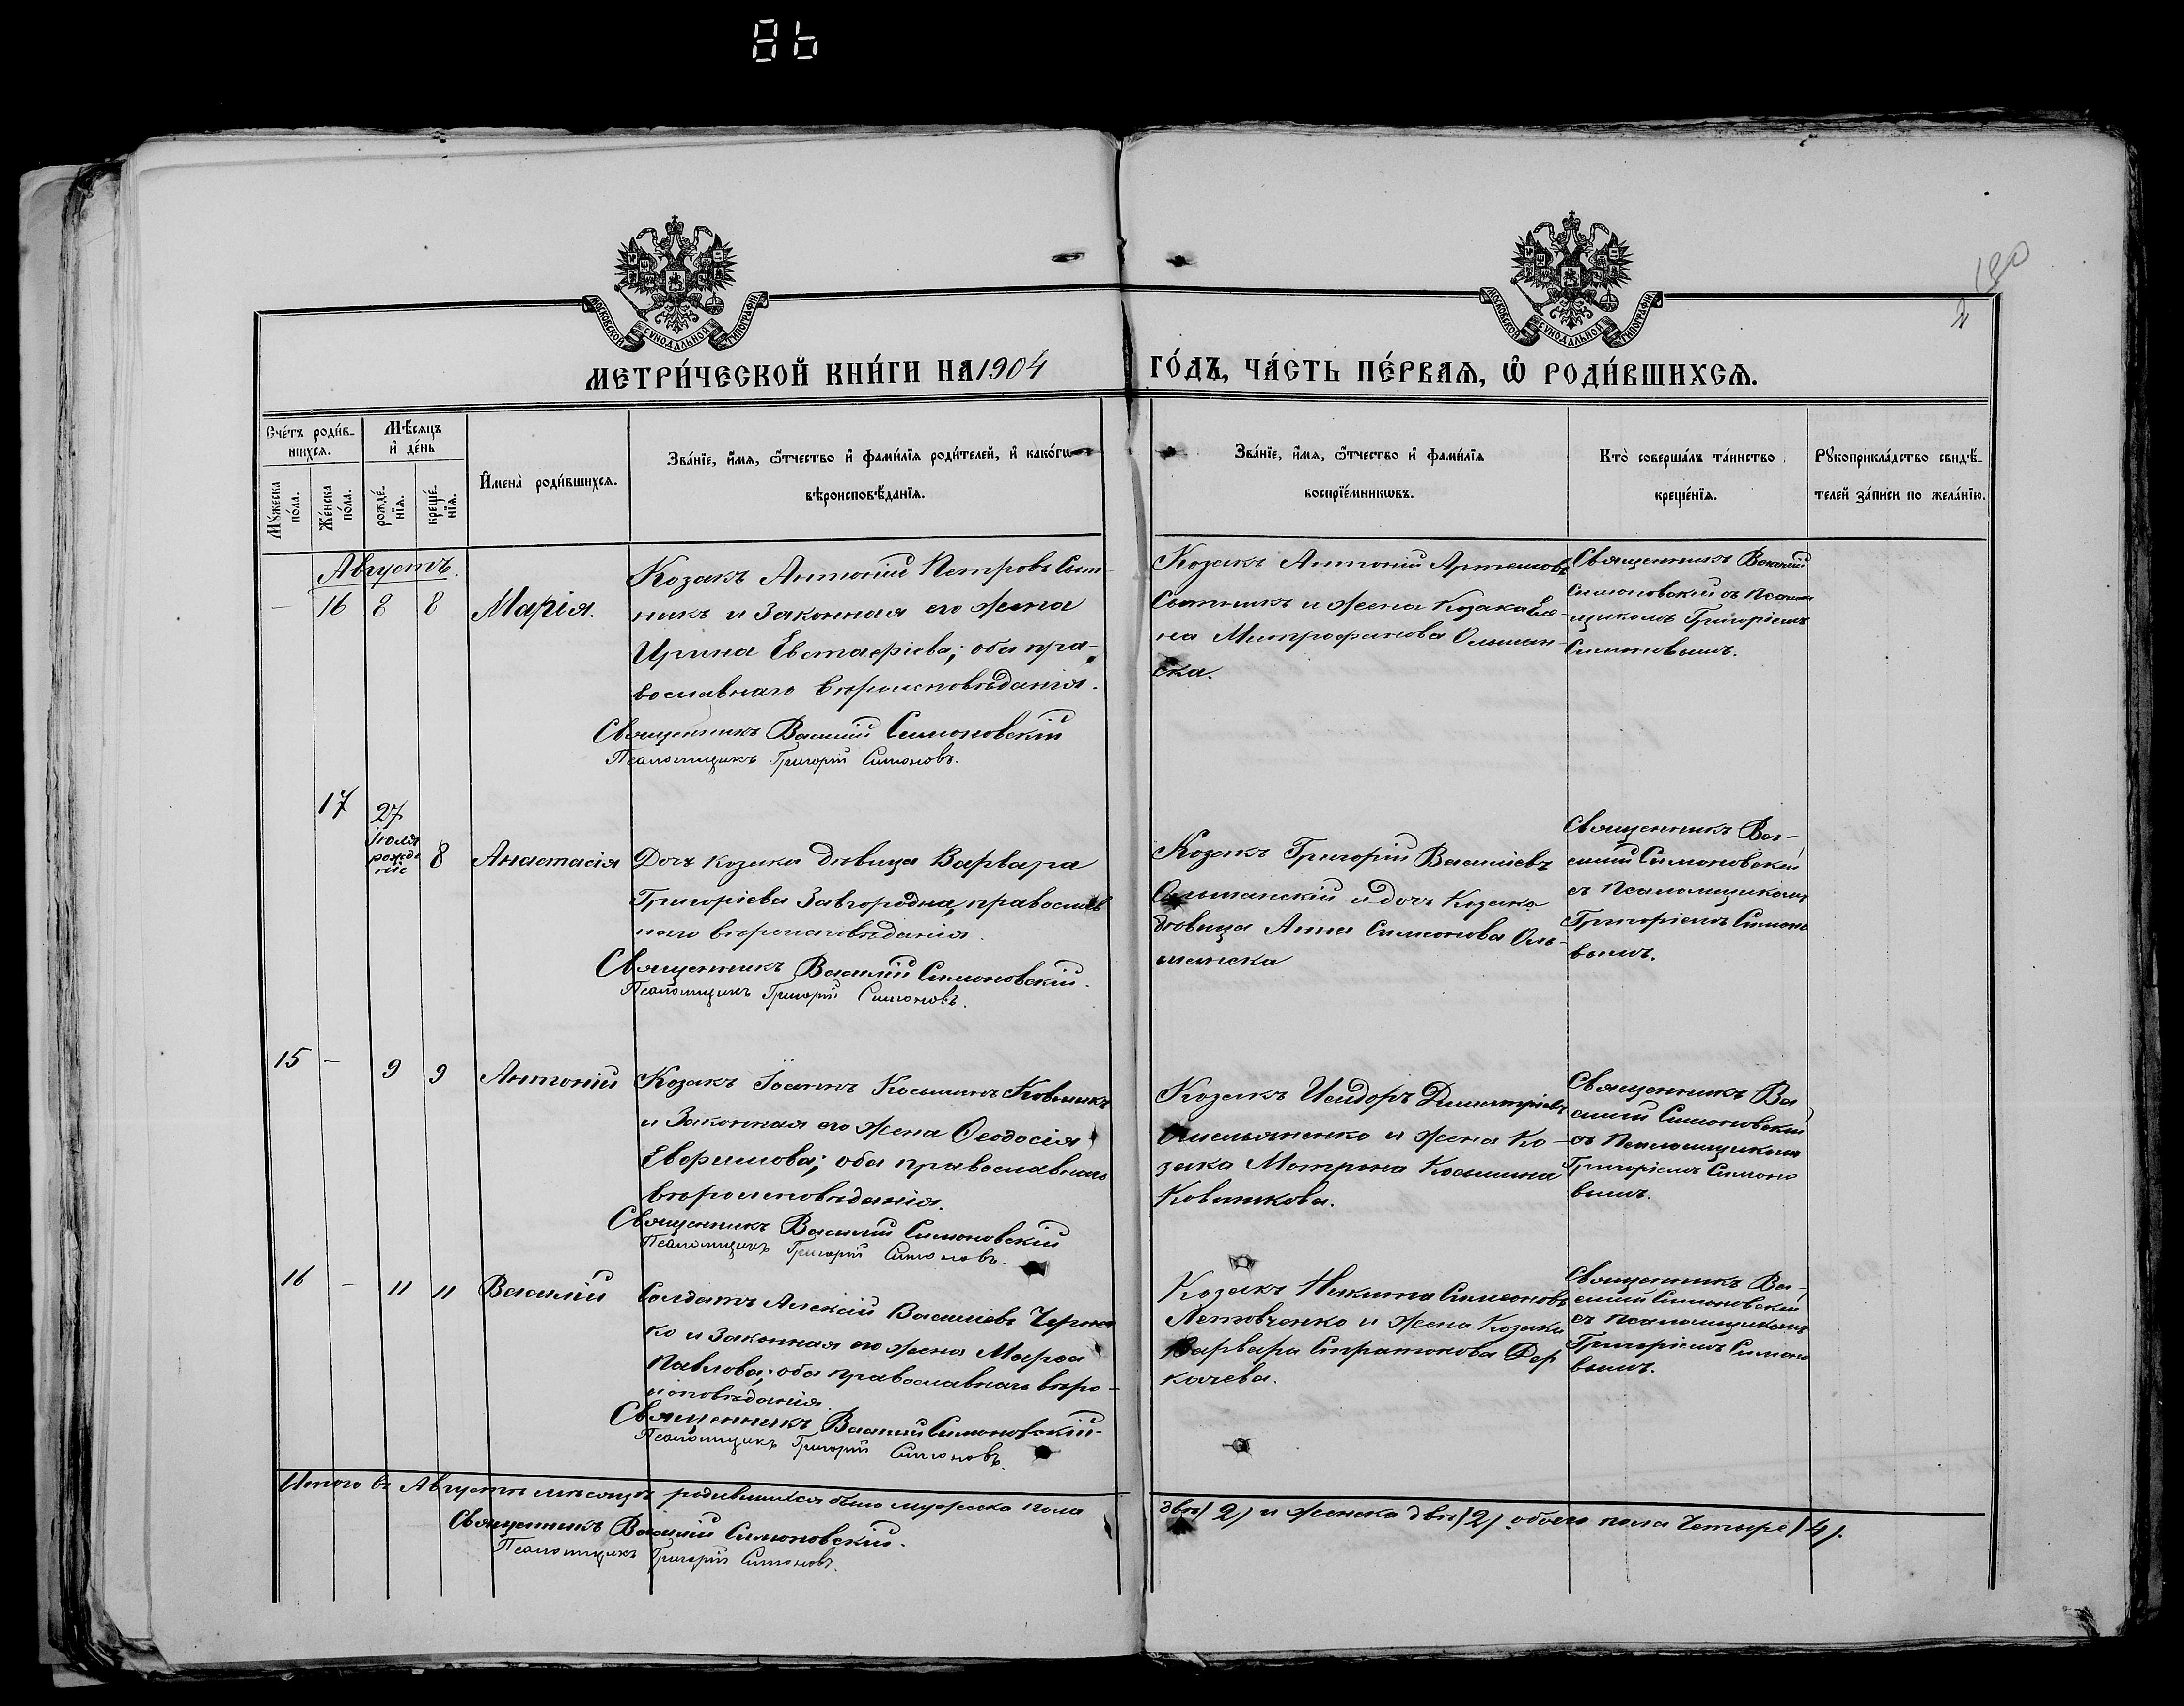 86
180
2
МОСКОВСКОЙ СѴНОДАЛЬНОЙ ТИПОГРАФІИ
МОСКОВСКОЙ СѴНОДАЛЬНОЙ ТИПОГРАФІИ
МЕТРИ́ЧЕСКОЙ КНИ́ГИ НА 1904 ГО́ДЪ, ЧА́СТЬ ПЕ́РВАѦ, Ѡ҆ РОДИ́ВШИХСѦ.
Сче́тъ роди́в-
шихсѧ.
Мѣ́сяцъ
и҆ де́нь
И҆мена̀ роди́вшихсѧ.
Зва́нїе, и҆́мѧ, ѻ҆́тчество и҆ фами́лїѧ роди́телей, и҆ како́гѡ
вѣроисповѣ́данїѧ.
Зва́нїе, и҆́мѧ, ѻ҆́тчество и҆ фами́лїѧ
воспрїе́мникѡвъ.
Кто̀ соверша́лъ та́инство
креще́нїѧ.
Рꙋкоприкла́дство свидѣ́-
телей за́писи по жела́нїю.
Мꙋ́жеска
по́ла.
Же́нска
по́ла.
рожде́-
нїѧ.
креще́-
нїѧ.
Августъ.
— 16 8 8 Марія.
Козакъ Антоній Петровъ Сыт-
никъ и законная его жена
Ирина Евстафіева; оба пра-
вославнаго вѣроисповѣданія.
Священникъ Василій Симоновскій
Псаломщикъ Григорій Симоновъ.
Козакъ Антоній Артемовъ
Сытникъ и жена козака Еле-
на Митрофанова Ольшан-
ска.
Священникъ Василій
Симоновскій съ псалом
щикомъ Григоріемъ
Симоновымъ.
17 27
Іюля
рожде
ніе
8 Анастасія
Дочь козака дѣвица Варвара
Григоріева Завгородня, православ
наго вѣроисповѣданія.
Священникъ Василій Симоновскій.
Псаломщикъ Григорій Симоновъ.
Козакъ Григорій Василіевъ
Ольшанскій и дочь козака
дѣвица Анна Симеонова Оль-
шанска
Священникъ Ва-
силій Симоновскій
съ псаломщикомъ
Григоріемъ Симоно
вымъ.
15 — 9 9 Антоній
Козакъ Іоаннъ Косьминъ Ковшикъ
и законная его жена Ѳеодосія
Евфимова; оба православнаго
вѣроисповѣданія.
Священникъ Василій Симоновскій
Псаломщикъ Григорій Симоновъ.
Козакъ Исидоръ Димитріевъ
Омельяненко и жена ко-
зака Матрона Косьмина
Ковшикова.
Священникъ Ва
силій Симоновскій
съ псаломщикомъ
Григоріемъ Симоно
вымъ.
16 — 11 11 Василій
Солдатъ Алексій Василіевъ Чернен
ко и законная его жена Марѳа
Павлова; оба православнаго вѣро-
исповѣданія.
Священникъ Василій Симоновскій
Псаломщикъ Григорій Симоновъ.
Козакъ Никита Симеоновъ
Летовченко и жена козака
Варвара Стратонова Дер
качева.
Священникъ Ва-
силій Симоновскій
съ псаломщикомъ
Григоріемъ Симоно
вымъ.
Итого въ Августѣ мѣсяцѣ родившихся было мужеска пола двое (2) и женска двѣ (2) обоего пола четыре (4).
Священникъ Василій Симоновскій.
Псаломщикъ Григорій Симоновъ.